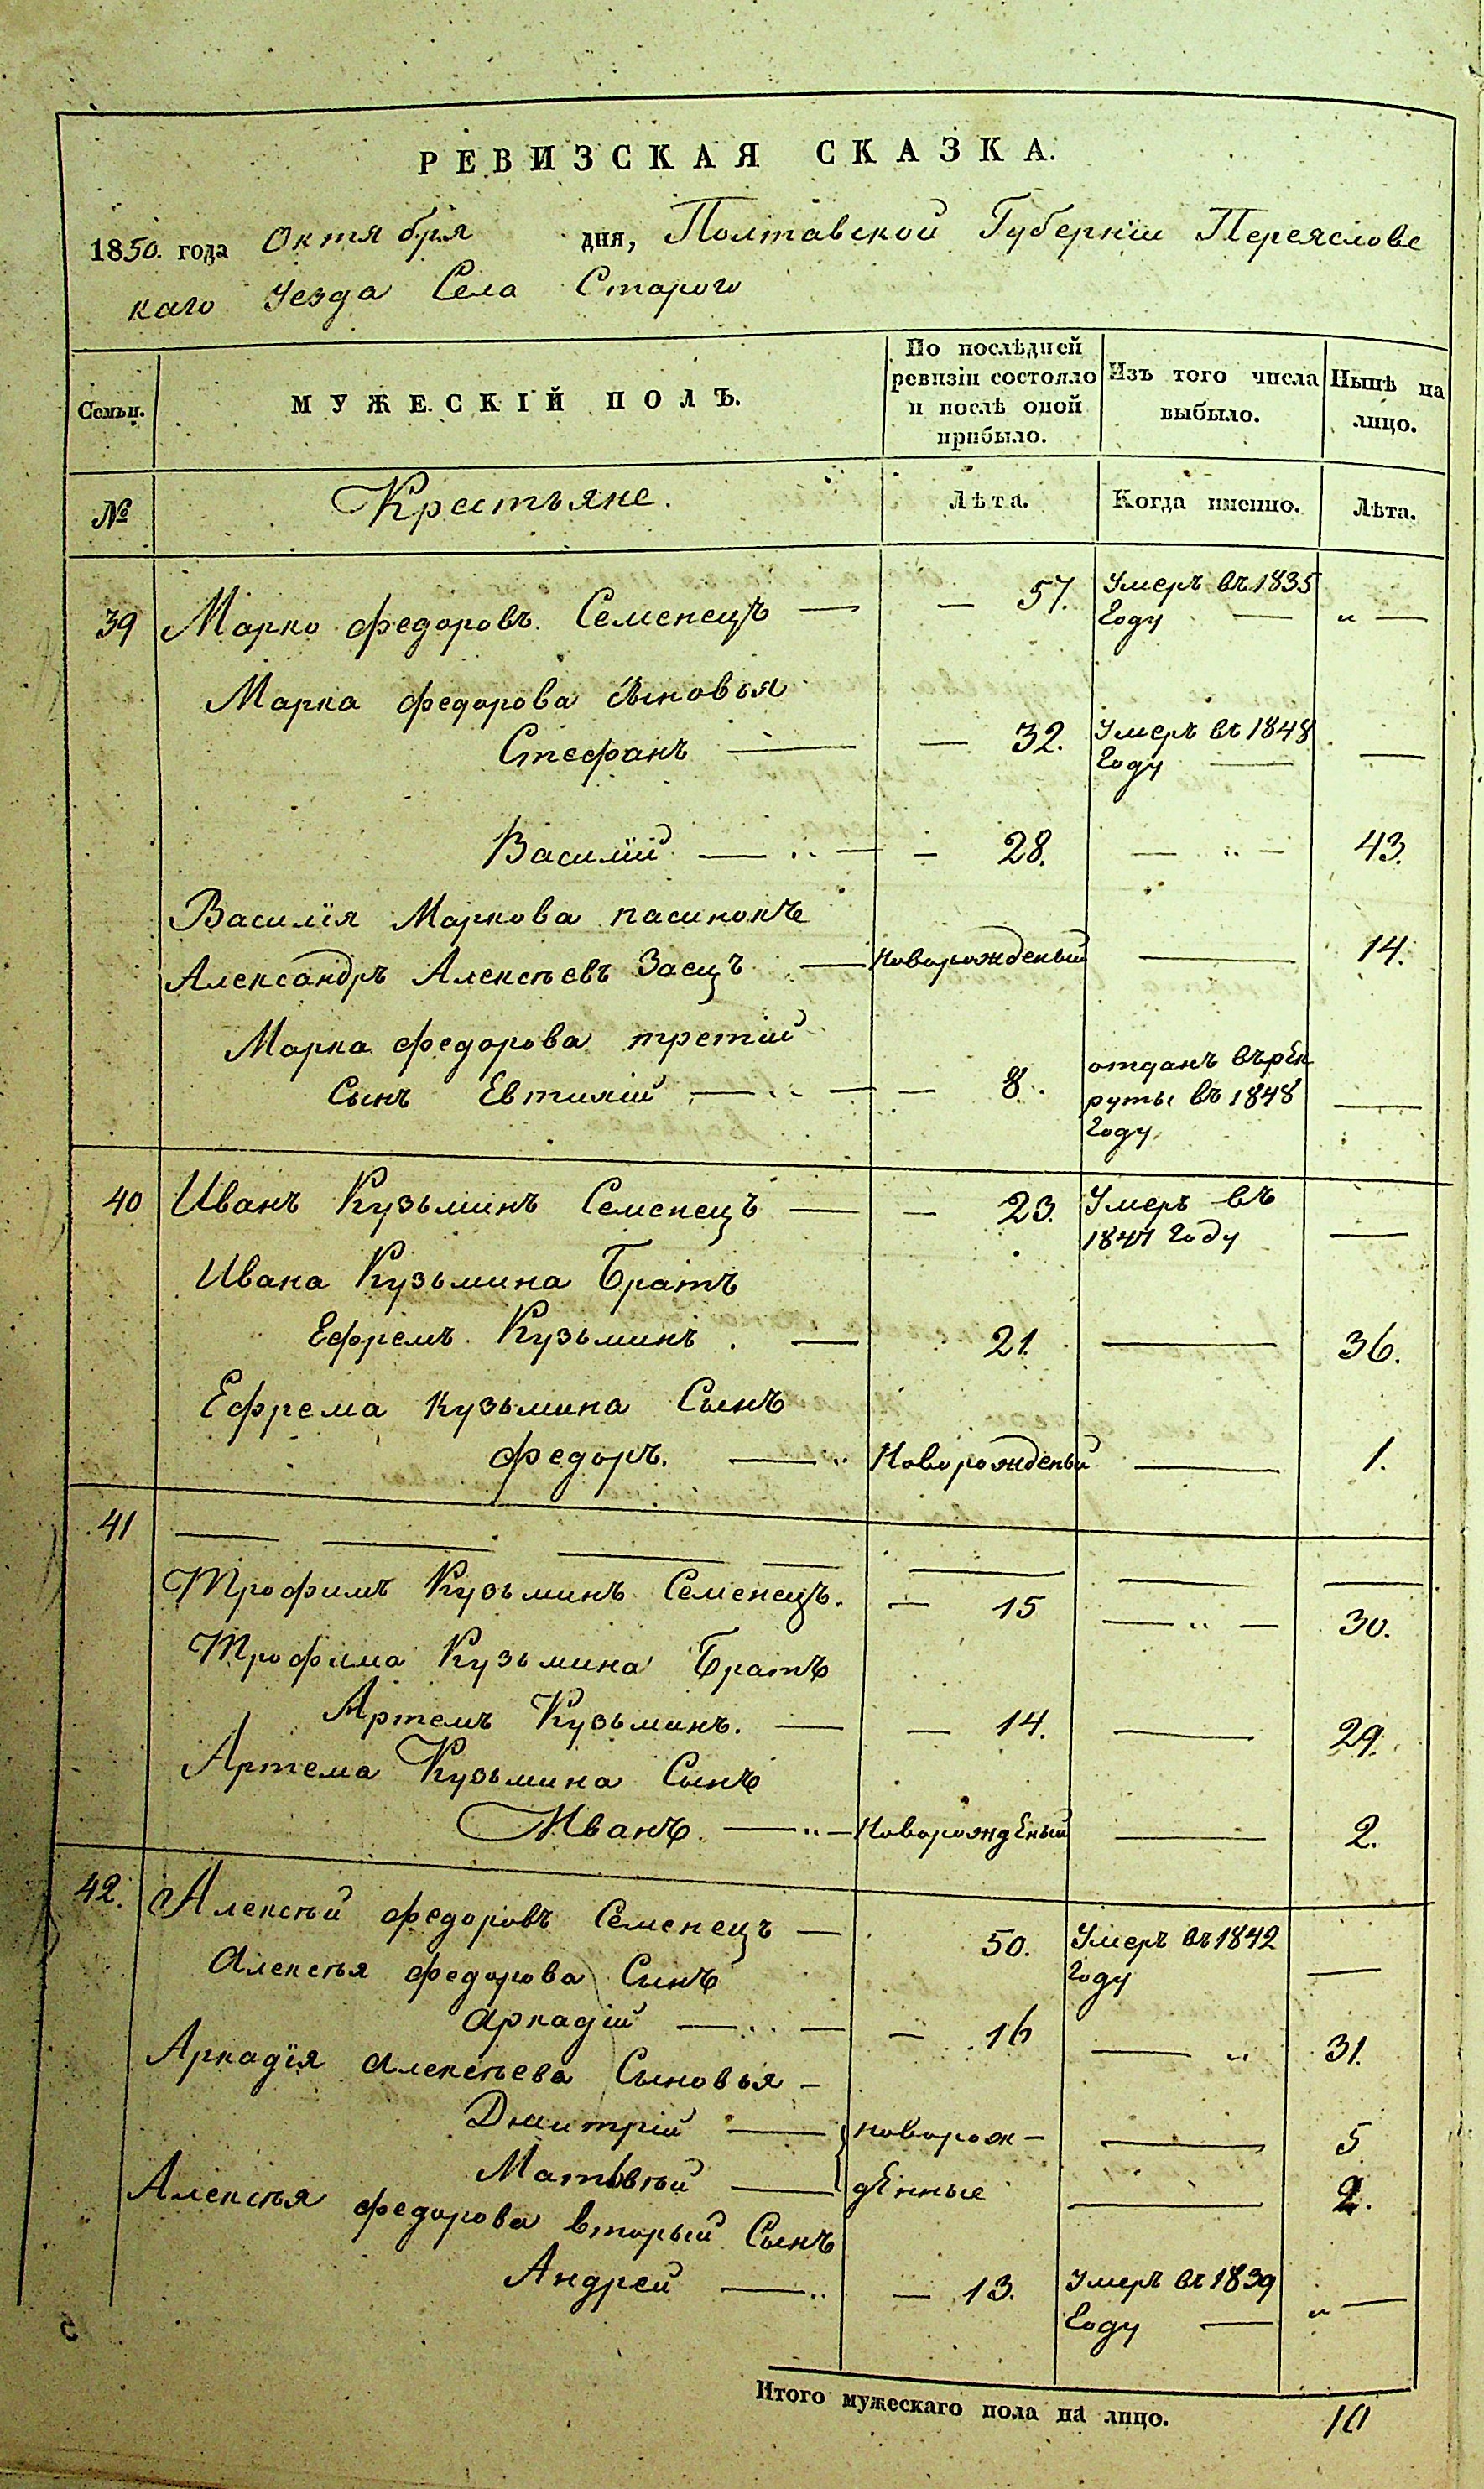 РЕВИЗСКАЯ СКАЗКА.
1850. года Октября дня, Полтавской Губернiи Переяславс
каго Уезда Села Старого
Семьи.
МУЖЕСКІЙ ПОЛЪ.
По послѣдней
ревизіи состояло
и послѣ оной
прибыло.
Изъ того числа
выбыло.
Нынѣ на
лицо.
№
Крестьяне.
Лѣта.
Когда именно.
Лѣта.
39 Марко Федоровъ Семенецъ — — 57. Умеръ въ 1835
Году — „ —
Марка Федорова Сыновья
Стефанъ — — 32. Умеръ въ 1848
Году — —
Василiй — „ — — 28. — „ — 43.
Василiя Маркова пасинокъ
Александръ Алексѣевъ Заецъ — Новорожденый — 14.
Марка Федорова третiй
Сынъ Евтихiй — „ — — 8. отданъ въ рек
руты въ 1848 —
Году
40 Иванъ Кузьминъ Семенецъ — — 23. Умеръ въ
1847 Году —
Ивана Кузьмина Братъ
Ефремъ Кузьминъ. — 21. — 36.
Ефрема Кузьмина Сынъ
Федоръ. — „ Новорожденый — 1.
41 — — — — — — —
Трофимъ Кузьминъ Семенецъ. — 15 — „ — 30.
Трофима Кузьмина Братъ
Артемъ Кузьминъ. — — 14. — 29.
Артема Кузьмина Сынъ
Иванъ — „ — Новорожденый — 2.
42. Алексѣй Федоровъ Семенецъ — 50. Умеръ въ 1842
Году —
Алексѣя Федорова Сынъ
Аркадiй — „ — — 16 — „ 31.
Аркадiя Алексѣева Сыновья —
Дмитрiй — } новорож — — 5
Матвѣй — денные — 2.
Алексѣя Федорова вторый Сынъ
Андрей — „ — 13. Умеръ въ 1839
Году — „ —
Итого мужескаго пола на лицо. 10